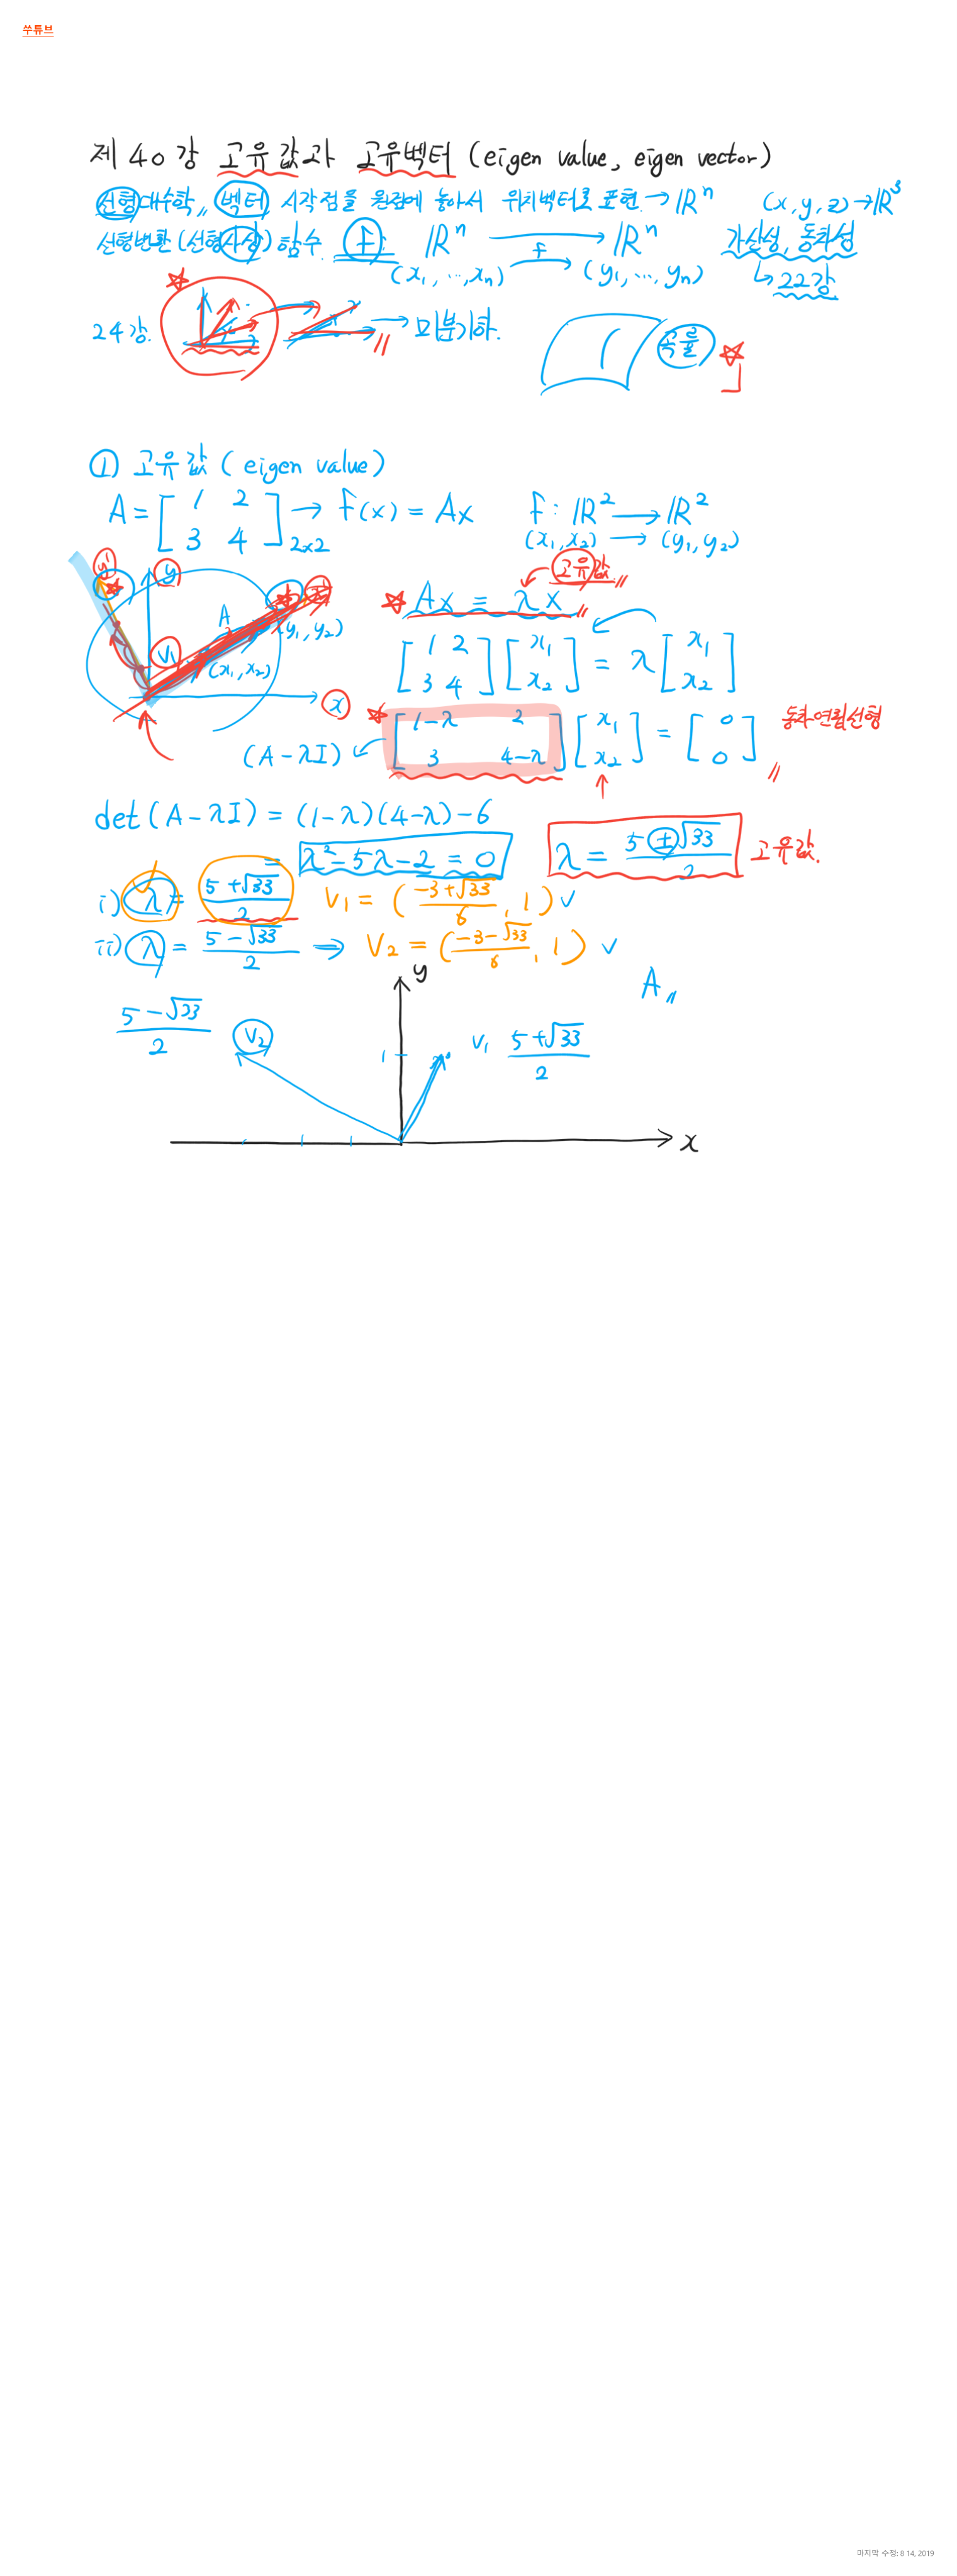 쑤튜브
제 40강 고유값과 고유벡터 (eigen value, eigen vector)
선형대수학,, 벡터 시작점을 원점에 놓아서 위치벡터로 표현. → ℝⁿ (x, y, z) → ℝ³
선형변환 (선형사상) 함수. f : ℝⁿ → ℝⁿ 가산성, 동차성
f
(x₁, ⋯, xₙ) → (y₁, ⋯, yₙ) ↳ 22강
24강. → 미분기하.
곡률
① 고유값 ( eigen value )
A = [1 2; 3 4] 2x2 → f(x) = Ax f : ℝ² → ℝ²
(x₁, x₂) → (y₁, y₂)
고유값
y' y
Ax = λx
A (y₁, y₂)
V₁ (x₁, x₂)
x
[1 2; 3 4] [x₁; x₂] = λ [x₁; x₂]
(A - λI) [1-λ 2; 3 4-λ] [x₁; x₂] = [0; 0] 동차연립선형
det (A - λI) = (1-λ)(4-λ) - 6
= λ² - 5λ - 2 = 0 λ = (5 ± √33)/2 고유값.
i) λ = (5 + √33)/2 V₁ = ( (-3+√33)/6 , 1 )
ii) λ = (5 - √33)/2 ⇒ V₂ = ( (-3-√33)/6 , 1 )
A
y
(5 - √33)/2 V₂ 1 V₁ (5 + √33)/2
x
마지막 수정: 8 14, 2019